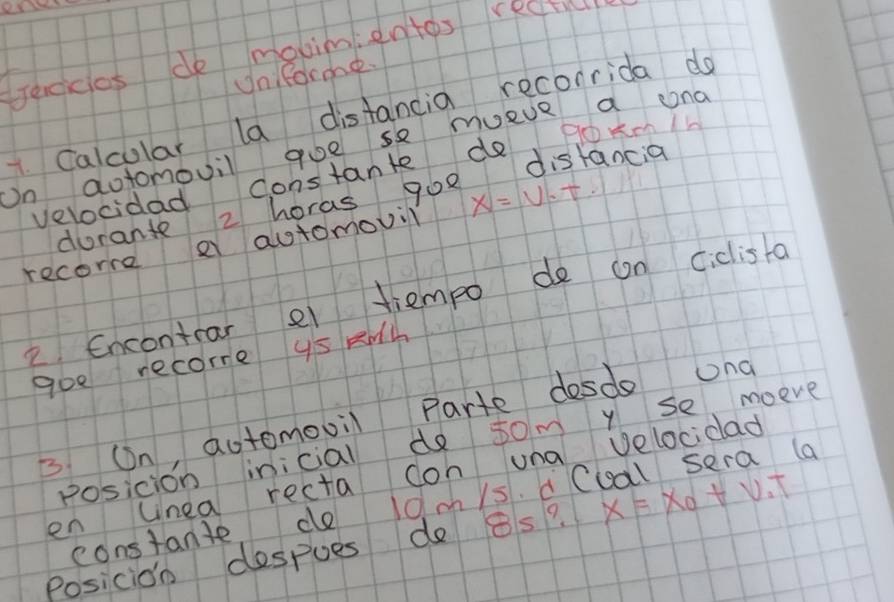 Ejercicios de movimientos
Uniforme.
1. Calcular la distancia recorrida de
Un automovil que se mueve a una
velocidad constante de 90 km/h
durante 2 horas que distancia
recorre el automovil X = V.t.
2. Encontrar el tiempo de un ciclista
que recorre 45 km/h
3. Un automovil parte desde una
Posición inicial de 50m y se mueve
en linea recta con una velocidad
constante de 10 m/s. ¿Cual sera la
Posición despues de 8s? X = X0 + V.T